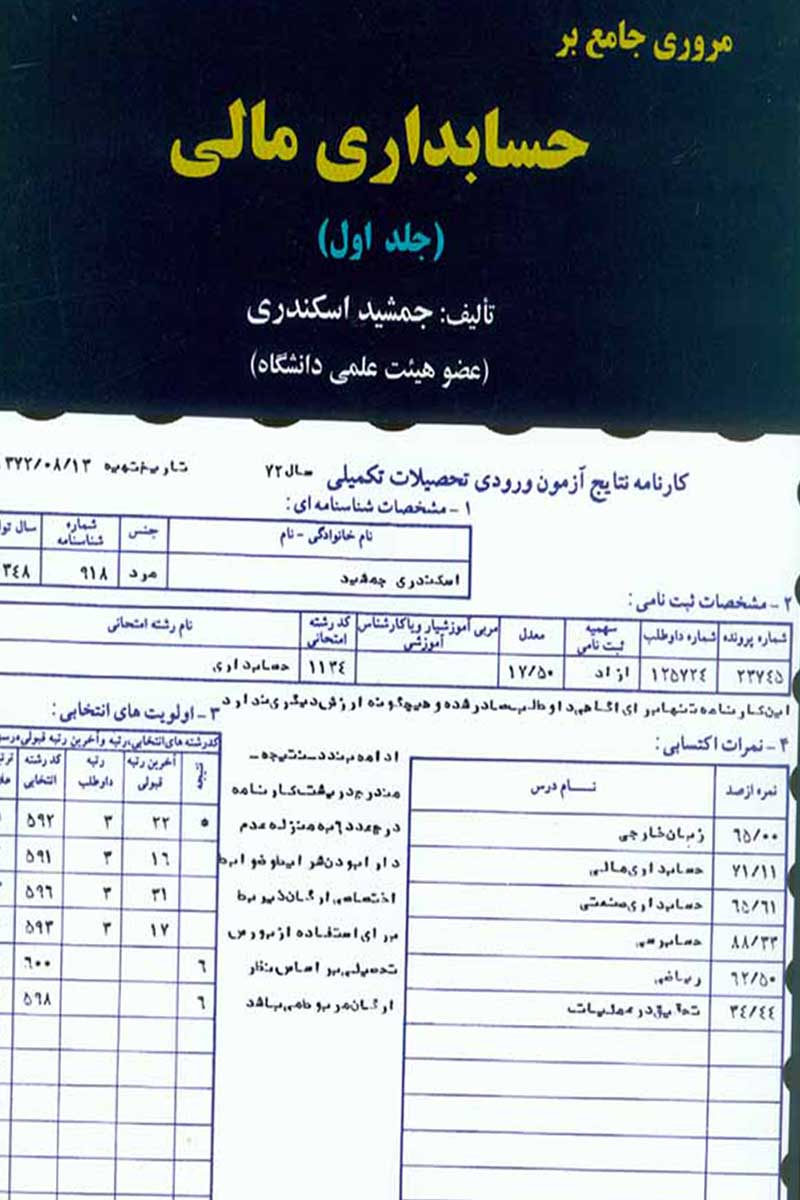 مروری جامع بر
حسابداری مالی
(جلد اول)
تألیف: جمشید اسکندری
(عضو هیئت علمی دانشگاه)
کارنامه نتایج آزمون ورودی تحصیلات تکمیلی سال ۷۲ تاریخ تهیه ۳۷۲/۰۸/۱۳
۱ - مشخصات شناسنامه ای:
نام خانوادگی - نام جنس شماره شناسنامه سال
اسکندری جمشید مرد ۹۱۸ ۳۴۸
۲ - مشخصات ثبت نامی:
شماره پرونده شماره داوطلب سهمیه ثبت نامی معدل مربی آموزشیار ویا کارشناس آموزشی کد رشته امتحانی نام رشته امتحانی
۲۳۷۴۵ ۱۲۵۷۲۴ ازاد ۱۷/۵۰ ۱۱۳۴ حسابداری
این کارنامه تنها برای آگاهی داوطلب صادر شده و هیچگونه ارزش دیگری ندارد
۳ - اولویت های انتخابی:
کدرشته های انتخابی، رتبه و آخرین رتبه قبولی
نتیجه آخرین رتبه قبولی رتبه داوطلب کد رشته انتخابی
* ۲۲ ۳ ۵۹۲
۱۶ ۳ ۵۹۱
۳۱ ۳ ۵۹۶
۱۷ ۳ ۵۹۳
۶ ۶۰۰
۶ ۵۹۸
ادامه بند نتیجه -
مندرج در پشت کارنامه
درج عدد ۶ به منزله عدم
دارا بودن شرایط و ضوابط
اختصاصی ارگان ذیربط
برای استفاده از بورس
تحصیلی بر اساس نظر
ارگان مربوط می باشد
۴ - نمرات اکتسابی:
نمره ازصد نام درس
۶۵/۰۰ زبان خارجی
۷۱/۱۱ حسابداری مالی
۶۵/۶۱ حسابداری صنعتی
۸۸/۳۳ حسابرسی
۶۲/۵۰ ریاضی
۳۴/۴۴ تحقیق در عملیات